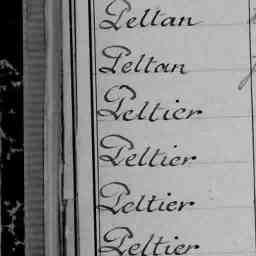 Peltan
Peltan
Peltier
Peltier
Peltier
Peltier